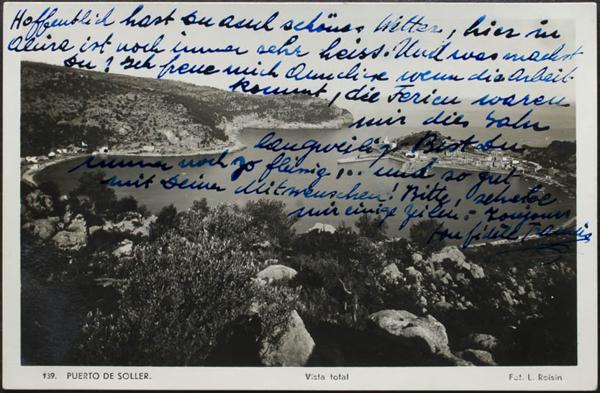 Hoffentlich hast Du auch schönes Wetter, hier in
ist noch immer sehr heiss. Und was machst
Du? Ich freue mich Anneliese wenn die Arbeit
kommt, die Ferien waren
mir dies Jahr
langweilig. Bist Du
immer noch so fleissig... und so gut
mit Deinen Mitmenschen! Bitte, schreibe
mir einige Zeilen. - Toujours
ton fidèle
139. PUERTO DE SOLLER.
Vista total
Fot. L. Roisin